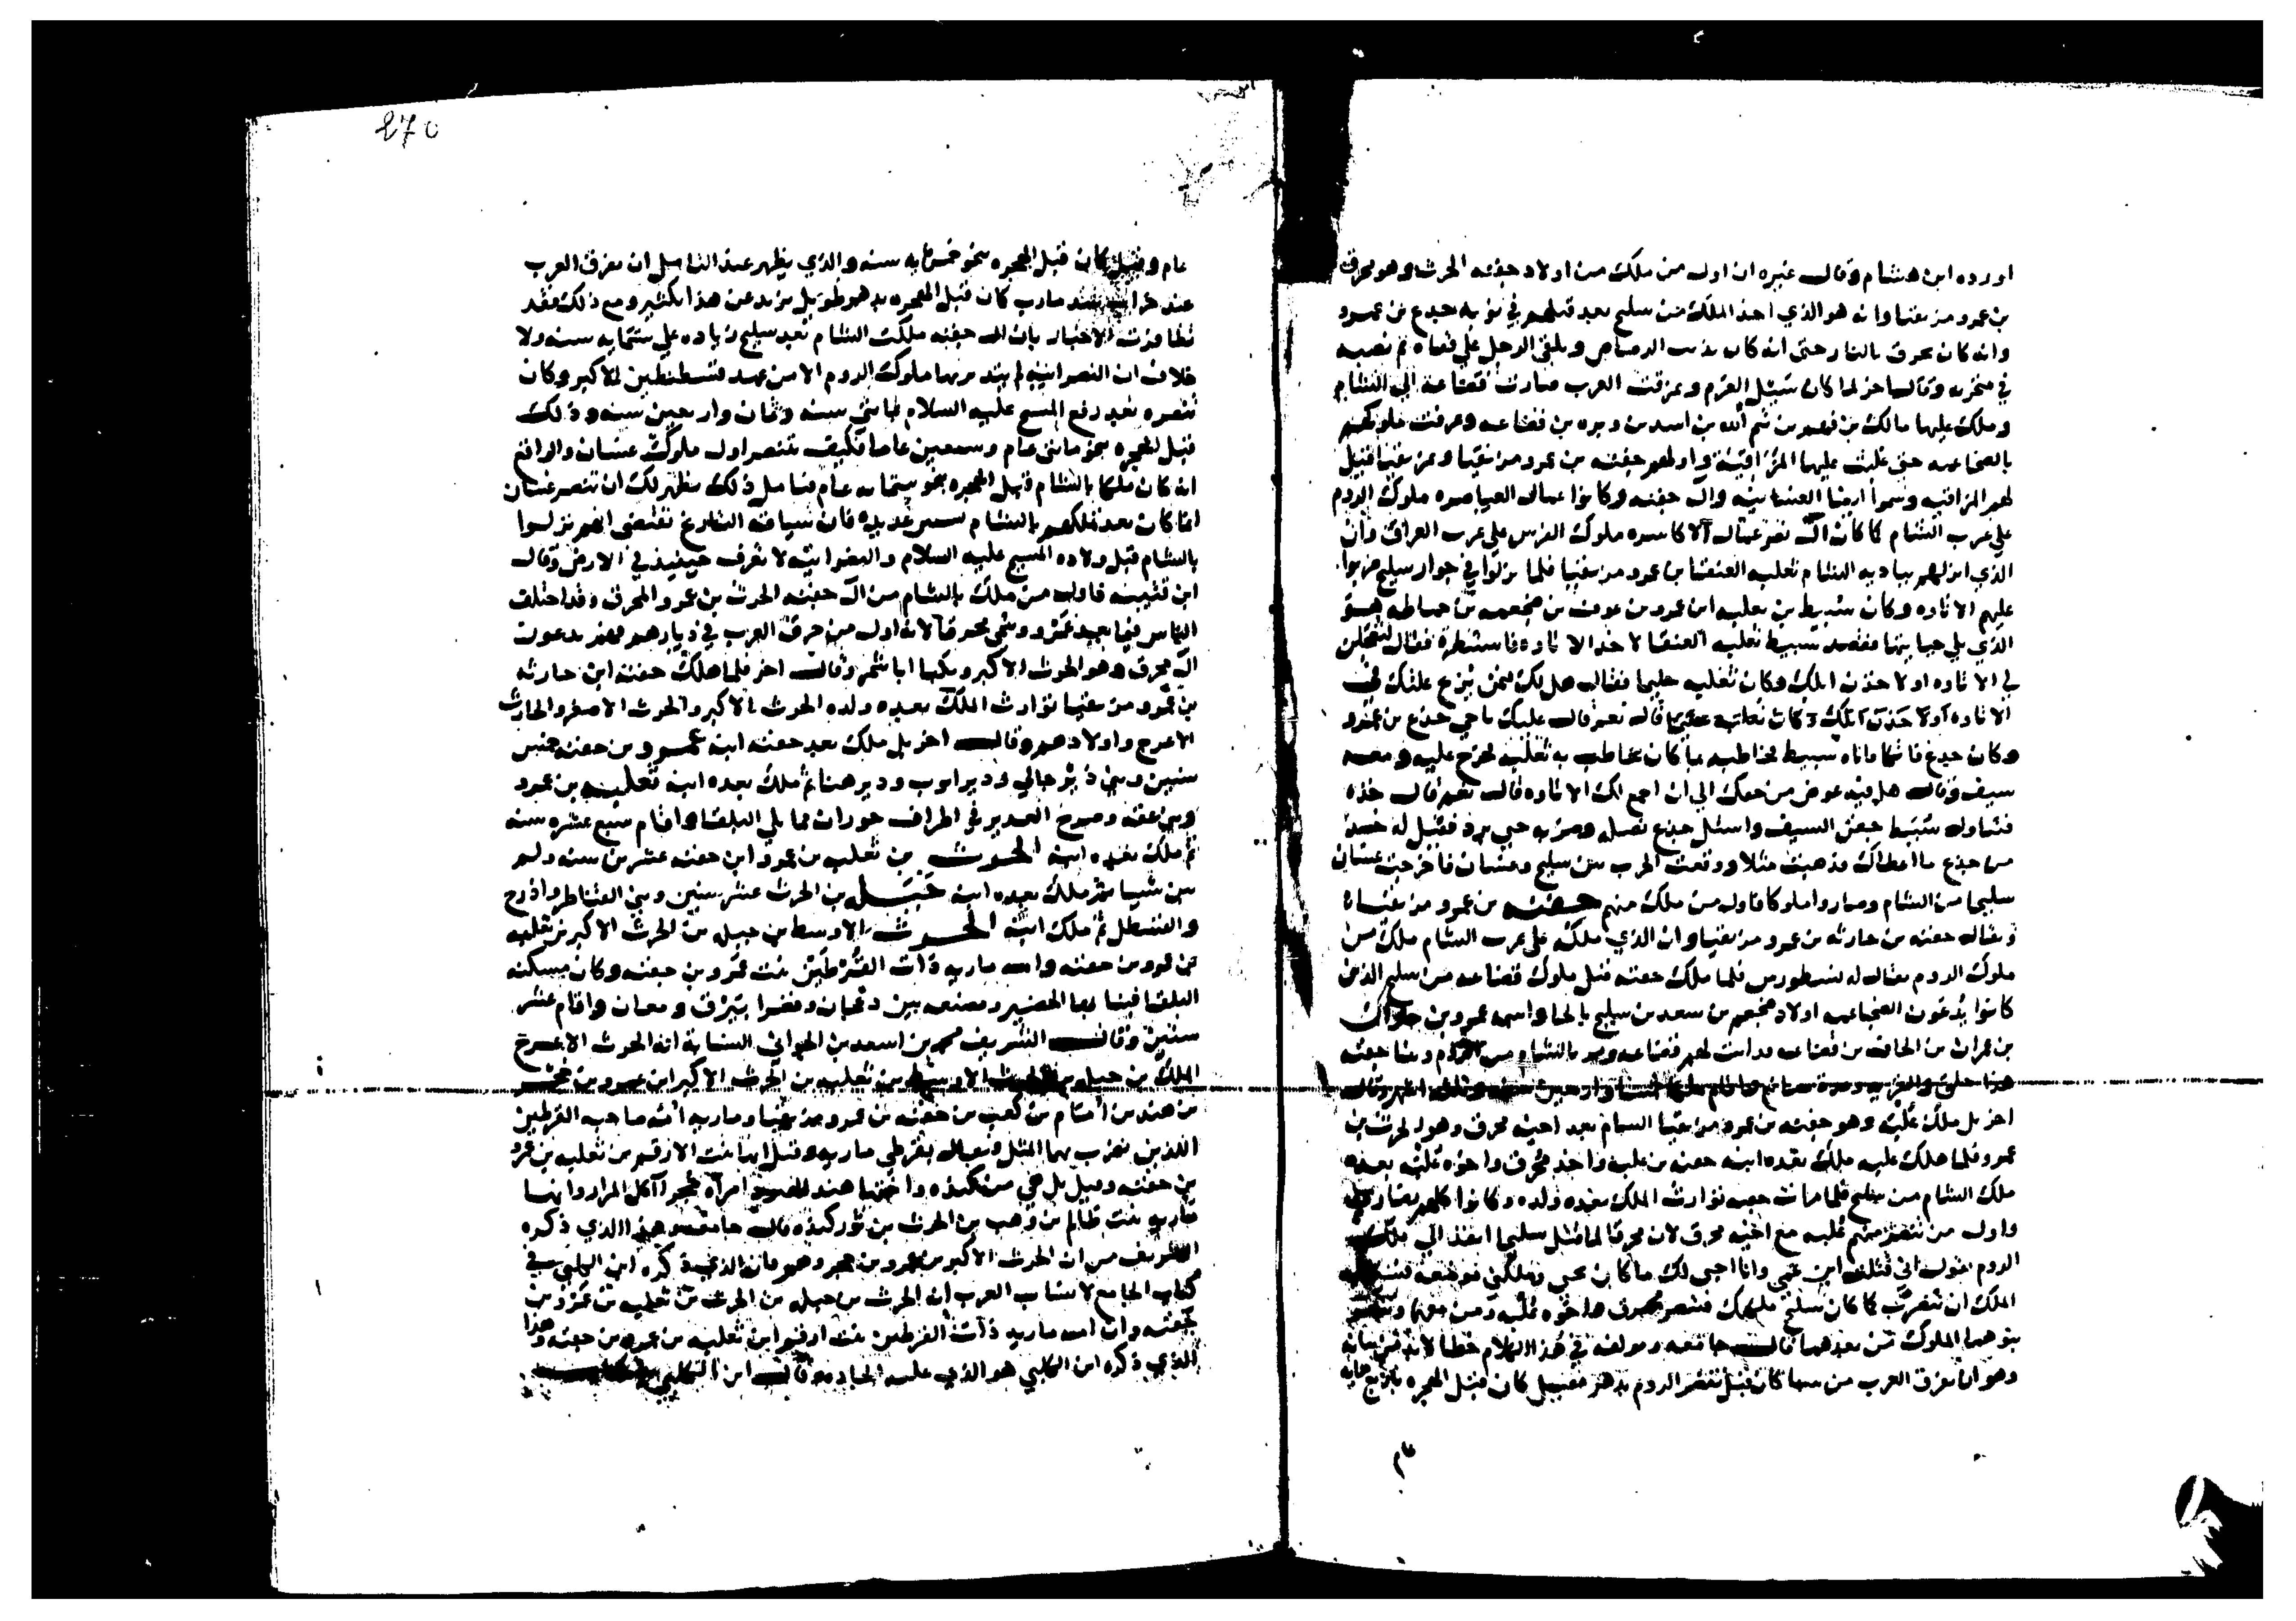 اورده ابن هشام وقال غيره ان اول من ملك من اولاد جفنه الحرث وهو محرق
بن عمرو مزيقيا وانه هو الذي اخذ الملك من سليح بعد قتلهم في نوبه جدع بن عمرو
وانه كان يحرق بالنار حتى انه كان يذيب الرصاص ويلقى الرجل على قفاه ثم يصبه
في منخريه وقال اخر لما كان سيل العرم وتمزقت العرب صارت قضاعة الى الشام
وملك عليها مالك بن فهم بن تيم الله بن اسد بن وبره بن قضاعه وعرفت ملوكهم
بالضجاعمه حتى غلبت عليها المزاقية واولهم جفنه بن عمرو مزيقيا وبمزيقيا قيل
لهم المزاقيه وسموا ايضا الغسانيه وال جفنه وكانوا عمال القياصره ملوك الروم
على عرب الشام كما كان ال نصر عمال الاكاسره ملوك الفرس على عرب العراق وان
الذي انزلهم بباديه الشام ثعلبه العنقا بن عمرو مزيقيا فلما نزلوا في جوار سليح ضربوا
عليهم الاتاوه وكان سبيط بن ثعلبه ابن عمرو بن عوف بن ضجعم بن حماطه هو
الذي يلي جبايتها فقصد سبيط ثعلبه العنقا لاخذ الاتاوه فاستنظره فقال لتعجلن
لي الاتاوه او لاخذن اهلك وكان ثعلبه حليما فقال هل لك فيمن يزيح علتك في
الاتاوه قال نعم قال عليك باخي جذع بن عمرو
وكان جذع فاتكا فاتاه سبيط فخاطبه بما كان خاطب به ثعلبه فخرج عليه ومعه
سيف وقال هل فيه عوض من حقك الى ان اجمع لك الاتاوه قال نعم قال خذه
فتناول سبيط جفن السيف واستل جذع نصله وضربه حتى برد فقيل له خذ
من جذع ما اعطاك فذهبت مثلا ووقعت الحرب بين سليح وغسان فاخرجت غسان
سليحا من الشام وصاروا ملوكا فاول من ملك منهم جفنه بن عمرو مزيقيا
ويقال جفنه بن حارثه بن عمرو مزيقيا وان الذي ملكه على عرب الشام ملك من
ملوك الروم يقال له نسطورس فلما ملك جفنه قتل ملوك قضاعه من سليح الذين
كانوا يدعون الضجاعمه اولاد ضجعم بن سعد بن سليح بالحا واسمه عمرو بن حلوان
بن عمران بن الحاف بن قضاعه ودانت لهم قضاعه ومن بالشام من الروم وبنا جفنه
هذا جلق والقريه وعده مصانع
اخر بل ملك علبه وهو جفنه بن عمرو مزيقيا الشام بعد اخيه محرق وهو الحرث بن
عمرو فلما هلك علبه ملك بعده ابنه جفنه بن علبه واخذ محرق واخوه علبه بعده
ملك الشام من سليح فلما مات جفنه توارث الملك بعده ولده وكانوا كلهم نصارى
واول من تنصر منهم علبه مع اخيه محرق لان محرقا لما قتل سليحا انفذ الى ملك
الروم يقول اني قتلت ابن عمي وانا اجبي لك ما كان يجبي
الملك ان تنصرت كما كان سليح ملكتك فتنصر محرق واخوه علبه ومن معهما
بنوهما الملوك من بعدهما قال جامعه ومولفه في هذا الكلام خطا لابد من بيانه
وهو ان تفرق العرب من سبا كان قبل تنصر الروم بدهر فقيل كان قبل الهجره باربع مايه
عام
عام وقيل كان قبل الهجره بنحو خمس مايه سنه والذي يظهر عند التامل ان تفرق العرب
عند خراب سد مارب كان قبل الهجره بدهر طويل يزيد عن هذا بكثير ومع ذلك فقد
تظافرت الاخبار بان ال جفنه ملكت الشام بعد سليح زياده على ستمايه سنه ولا
خلاف ان النصرانيه لم يتدين بها ملوك الروم الا من عهد قسطنطين الاكبر وكان
تنصره بعد رفع المسيح عليه السلام بمايتي سنه وثمان واربعين سنه وذلك
قبل الهجره بنحو مايتي عام وسبعين عاما فكيف يتنصر اول ملوك غسان والواقع
انه كان ملكا بالشام قبل الهجره بنحو ستمايه عام فتامل ذلك يظهر لك ان تنصر غسان
انما كان بعد تملكهم بالشام بسنين عديده فان سياقه التاريخ تقتضي انهم نزلوا
بالشام قبل ولاده المسيح عليه السلام والنصرانيه لا تعرف حينيذ في الارض وقال
ابن قتيبه فاول من ملك بالشام من ال جفنه الحرث بن عمرو المحرق وقد اختلف
الناس فيما بعد عمرو وسمي محرقا لانه اول من حرق العرب في ديارهم فهم يدعون
ال محرق وهو الحرث الاكبر ويكنا ابا شمر وقال اخر فلما هلك جفنه ابن حارثه
بن عمرو مزيقيا توارث الملك بعده ولده الحرث الاكبر والحرث الاصغر والحارث
الاعرج واولادهم وقال اخر بل ملك بعد جفنه ابنه عمرو بن جفنه خمس
سنين وبنى دير حالي ودير ايوب ودير هنا ثم ملك بعده ابنه ثعلبه بن عمرو
وبنى عقه وصرح الغدير في اطراف حوران مما يلي البلقا واقام سبع عشره سنه
ثم ملك بعده ابنه الحرث بن ثعلبه بن عمرو ابن جفنه عشرين سنه ولم
يبن شيا ثم ملك بعده ابنه جبله بن الحرث عشر سنين وبنى القناطر واذرح
والقسطل ثم ملك ابنه الحرث الاوسط بن جبله بن الحرث الاكبر بن ثعلبه
بن عمرو بن جفنه وامه ماريه ذات القرطين بنت عمرو بن جفنه وكان مسكنه
البلقا فبنا بها الحفير ومصنعه بين دعجان وقصرا بيرق ومعان واقام عشر
سنين وقال الشريف محمد بن اسعد بن الجواني النسابة انه الحرث الاعرج
الملك بن جبله بن الحرث الاوسط بن ثعلبه بن الحرث الاكبر ابن عمرو بن حجر
بن هند بن امام بن كعب بن جفنه بن عمرو مزيقيا وماريه امه صاحبه القرطين
اللذين يضرب بهما المثل فيقال بقرطي ماريه وقيل انها بنت الارقم بن ثعلبه بن عمرو
بن جفنه وقيل بل هي من كنده واختها هند الهنود امراه حجر اكل المرار وانها
ماريه بنت ظالم بن وهب بن الحرث بن ثور كنده قال جامعه هذا الذي ذكره
الشريف من ان الحرث الاكبر بن عمرو بن حجر وهم فان الذي ذكره ابن الكلبي في
كتاب الجامع لانساب العرب ان الحرث بن جبله بن الحرث بن ثعلبه بن عمرو بن
جفنه وان امه ماريه ذات القرطين بنت ارقم ابن ثعلبه بن عمرو بن جفنه وهذا
الذي ذكره ابن الكلبي هو الذي عليه الجاده وقال ابن الكلبي
270